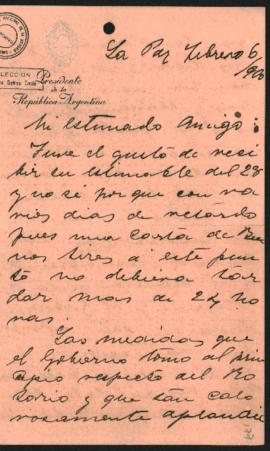 La Paz Febrero 6/900
COLECCION
Presidente
de la
República Argentina
Mi Estimado Amigo:
Tuve el gusto de reci
bir su estimable del 28
y no sé porque con va
rios dias de retardo
pues una carta de Bue
nos Aires a este pun
to no debiera tar
dar mas de 24 ho
ras.
Las medidas que
el Gobierno tomó al prin
cipio respecto del Ro
sario y que tan calo
rosamente aplaudie